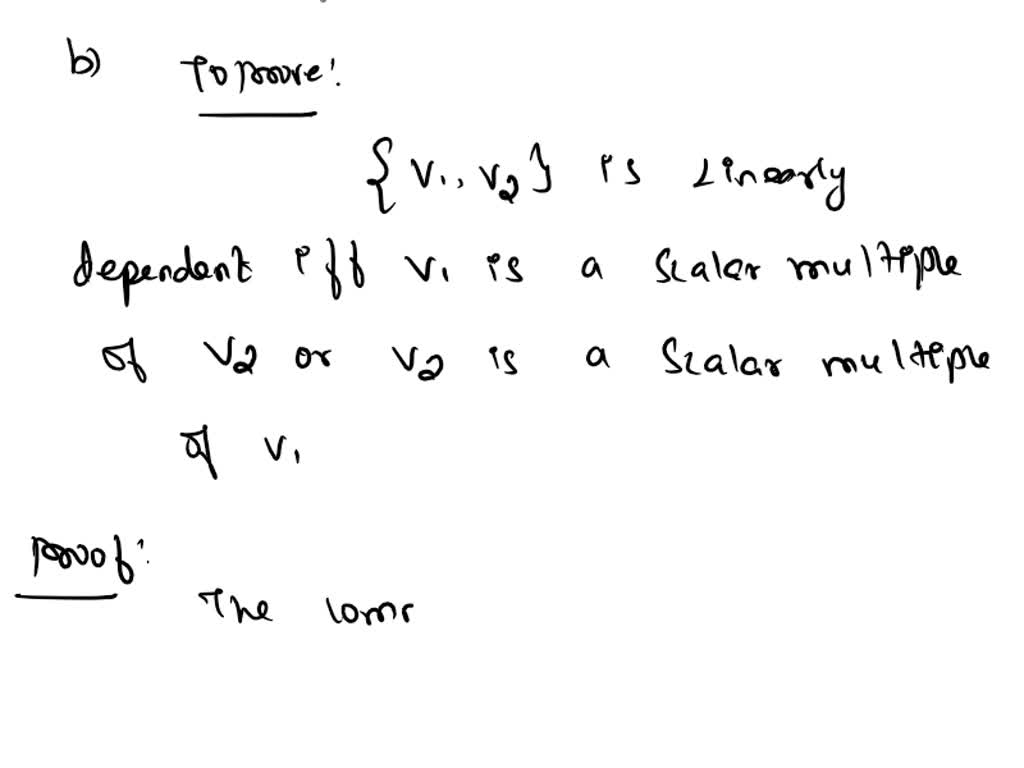 b) To prove:
{v1, v2} is Linearly
dependent iff v1 is a scalar multiple
of v2 or v2 is a scalar multiple
of v1
proof:
The